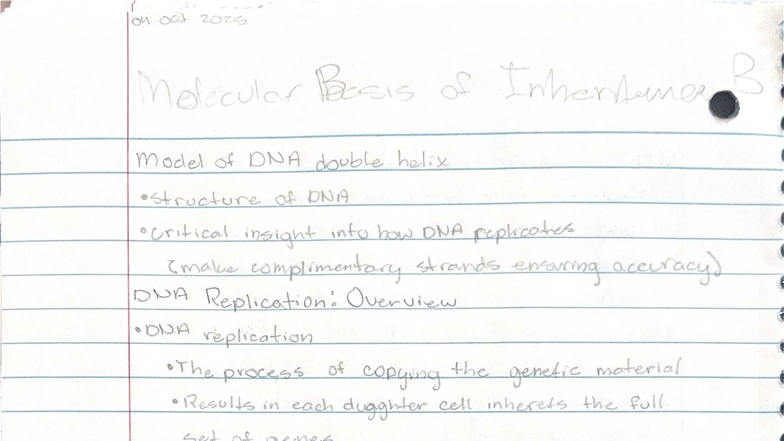 04 Oct 2025
Molecular Basis of Inheritance B
Model of DNA double helix
•Structure of DNA
•Critical insight into how DNA replicates
(make complimentary strands ensuring accuracy)
DNA Replication: Overview
•DNA replication
•The process of copying the genetic material
•Results in each dugghter cell inherets the full
set of genes